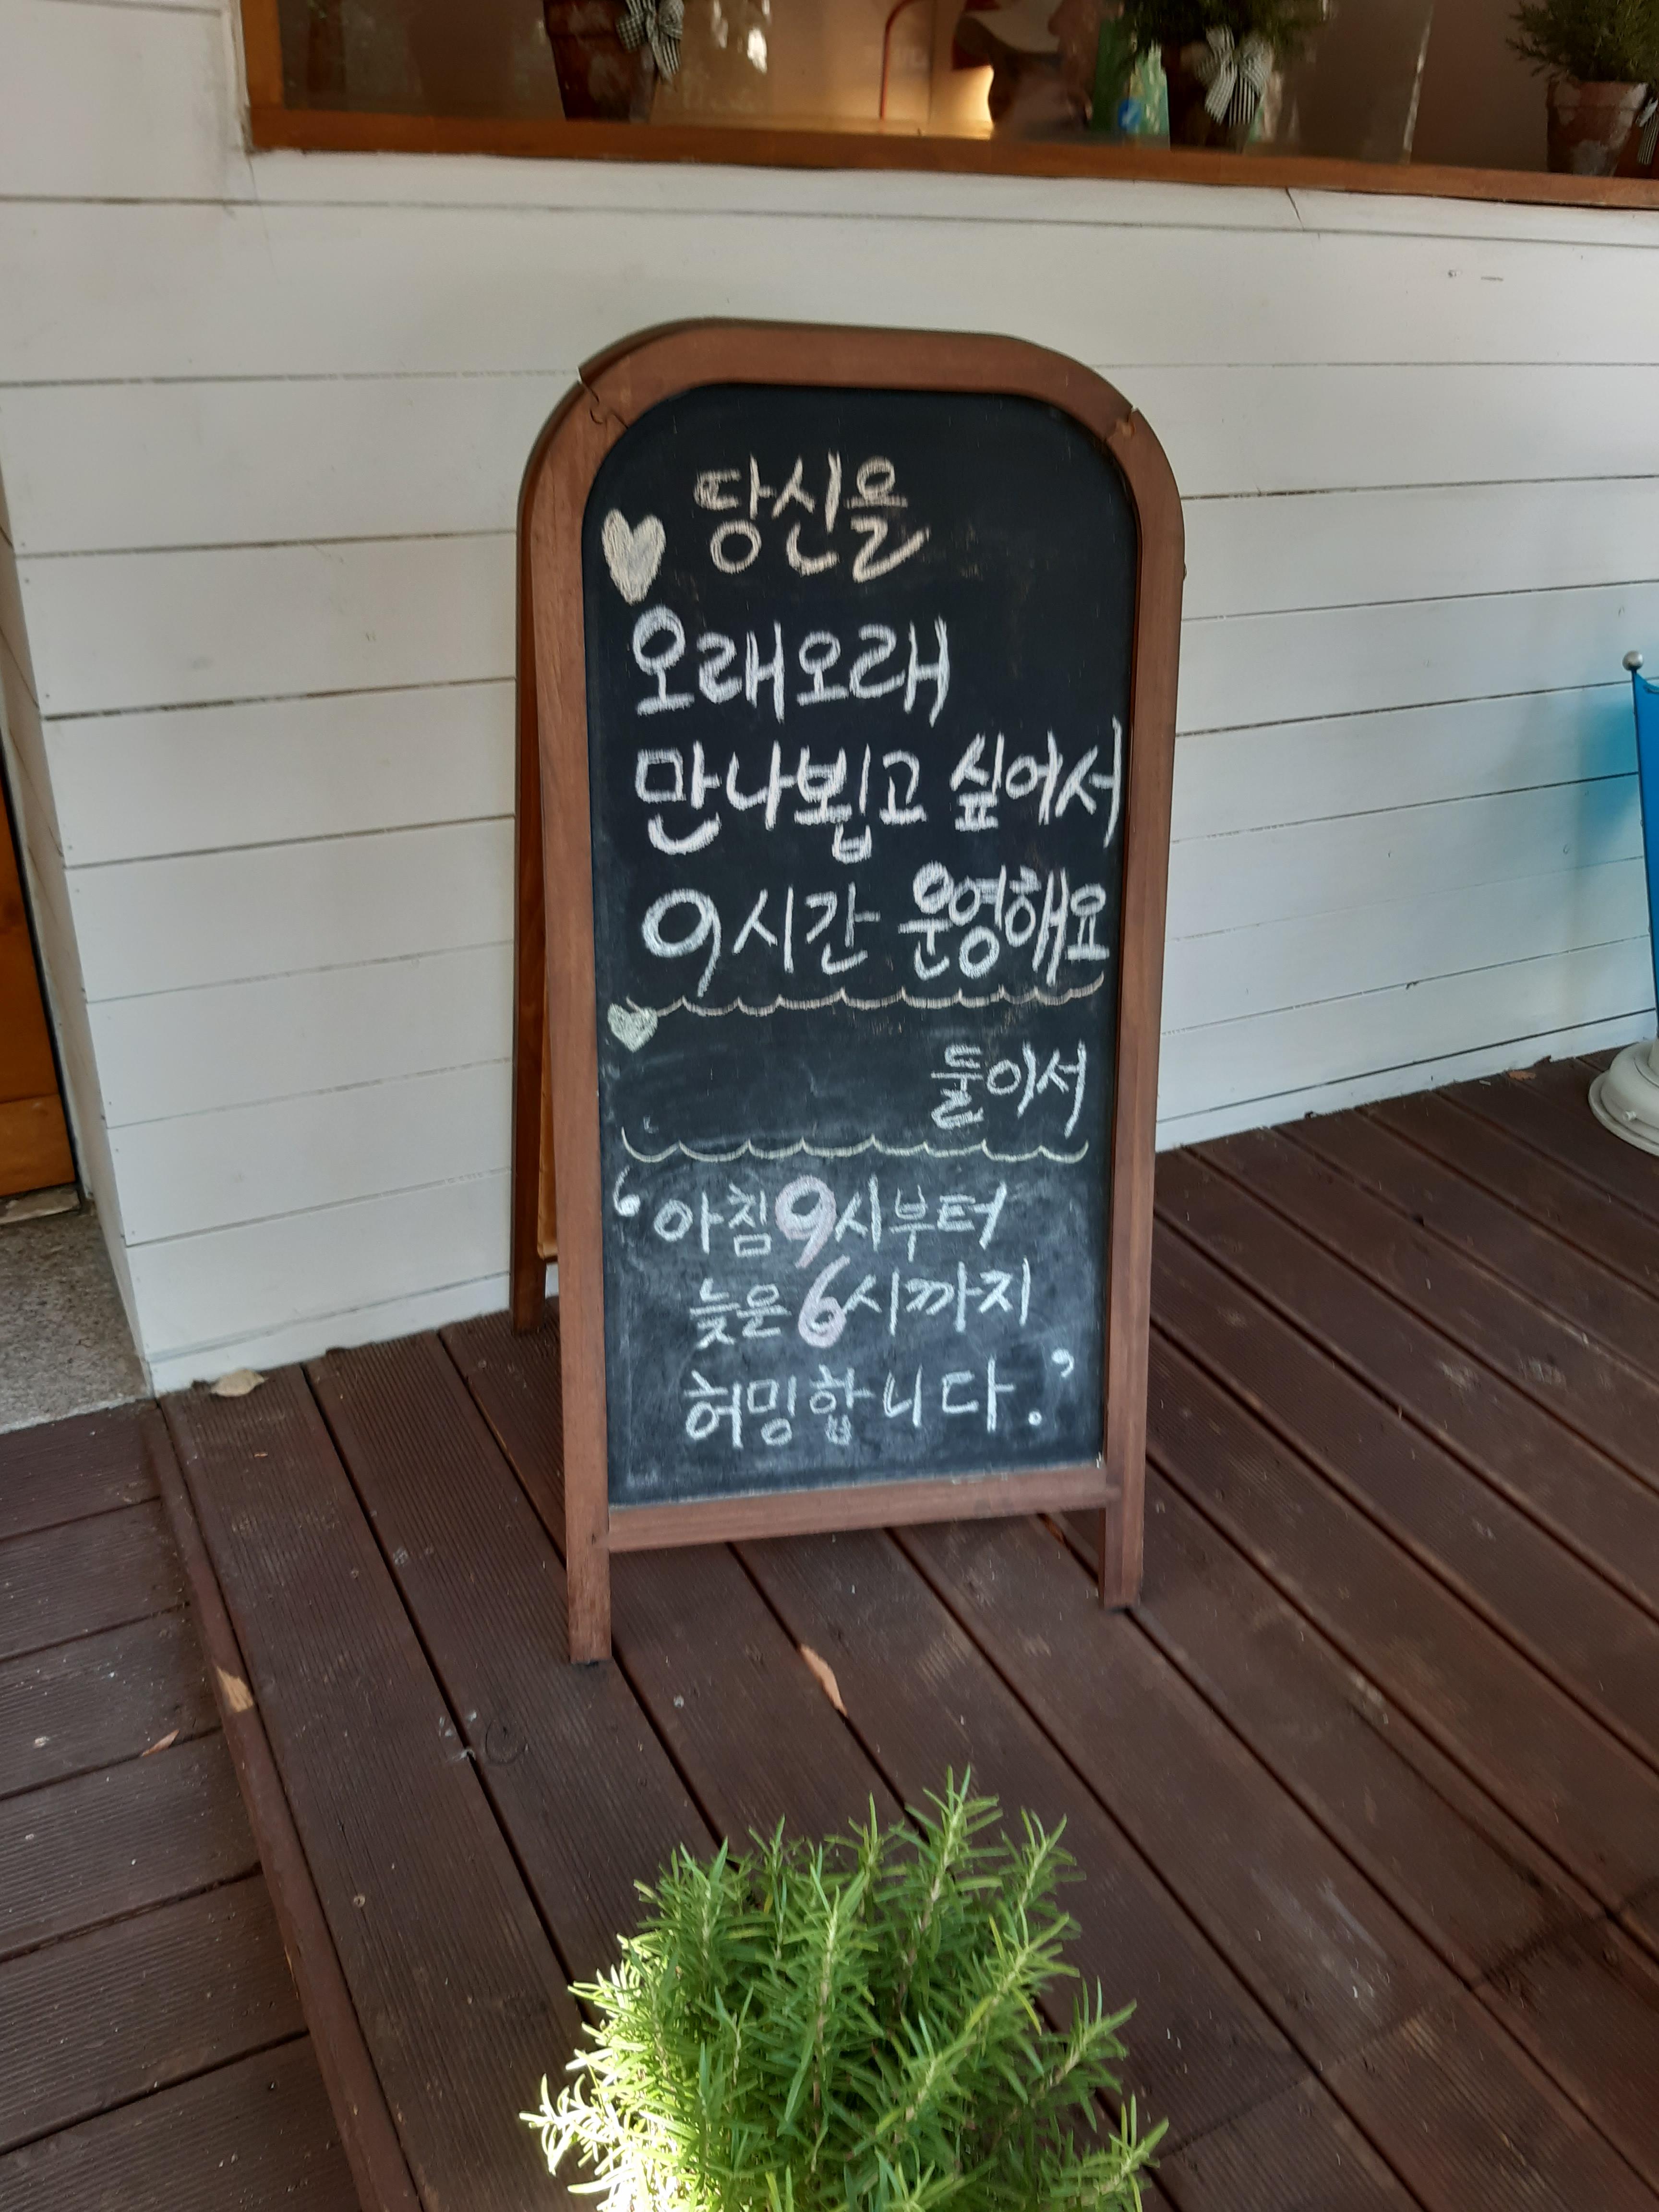 당신을
오래오래
만나뵙고 싶어서
9시간 운영해요
둘이서
‘아침 9시부터
늦은 6시까지
허밍합니다.’